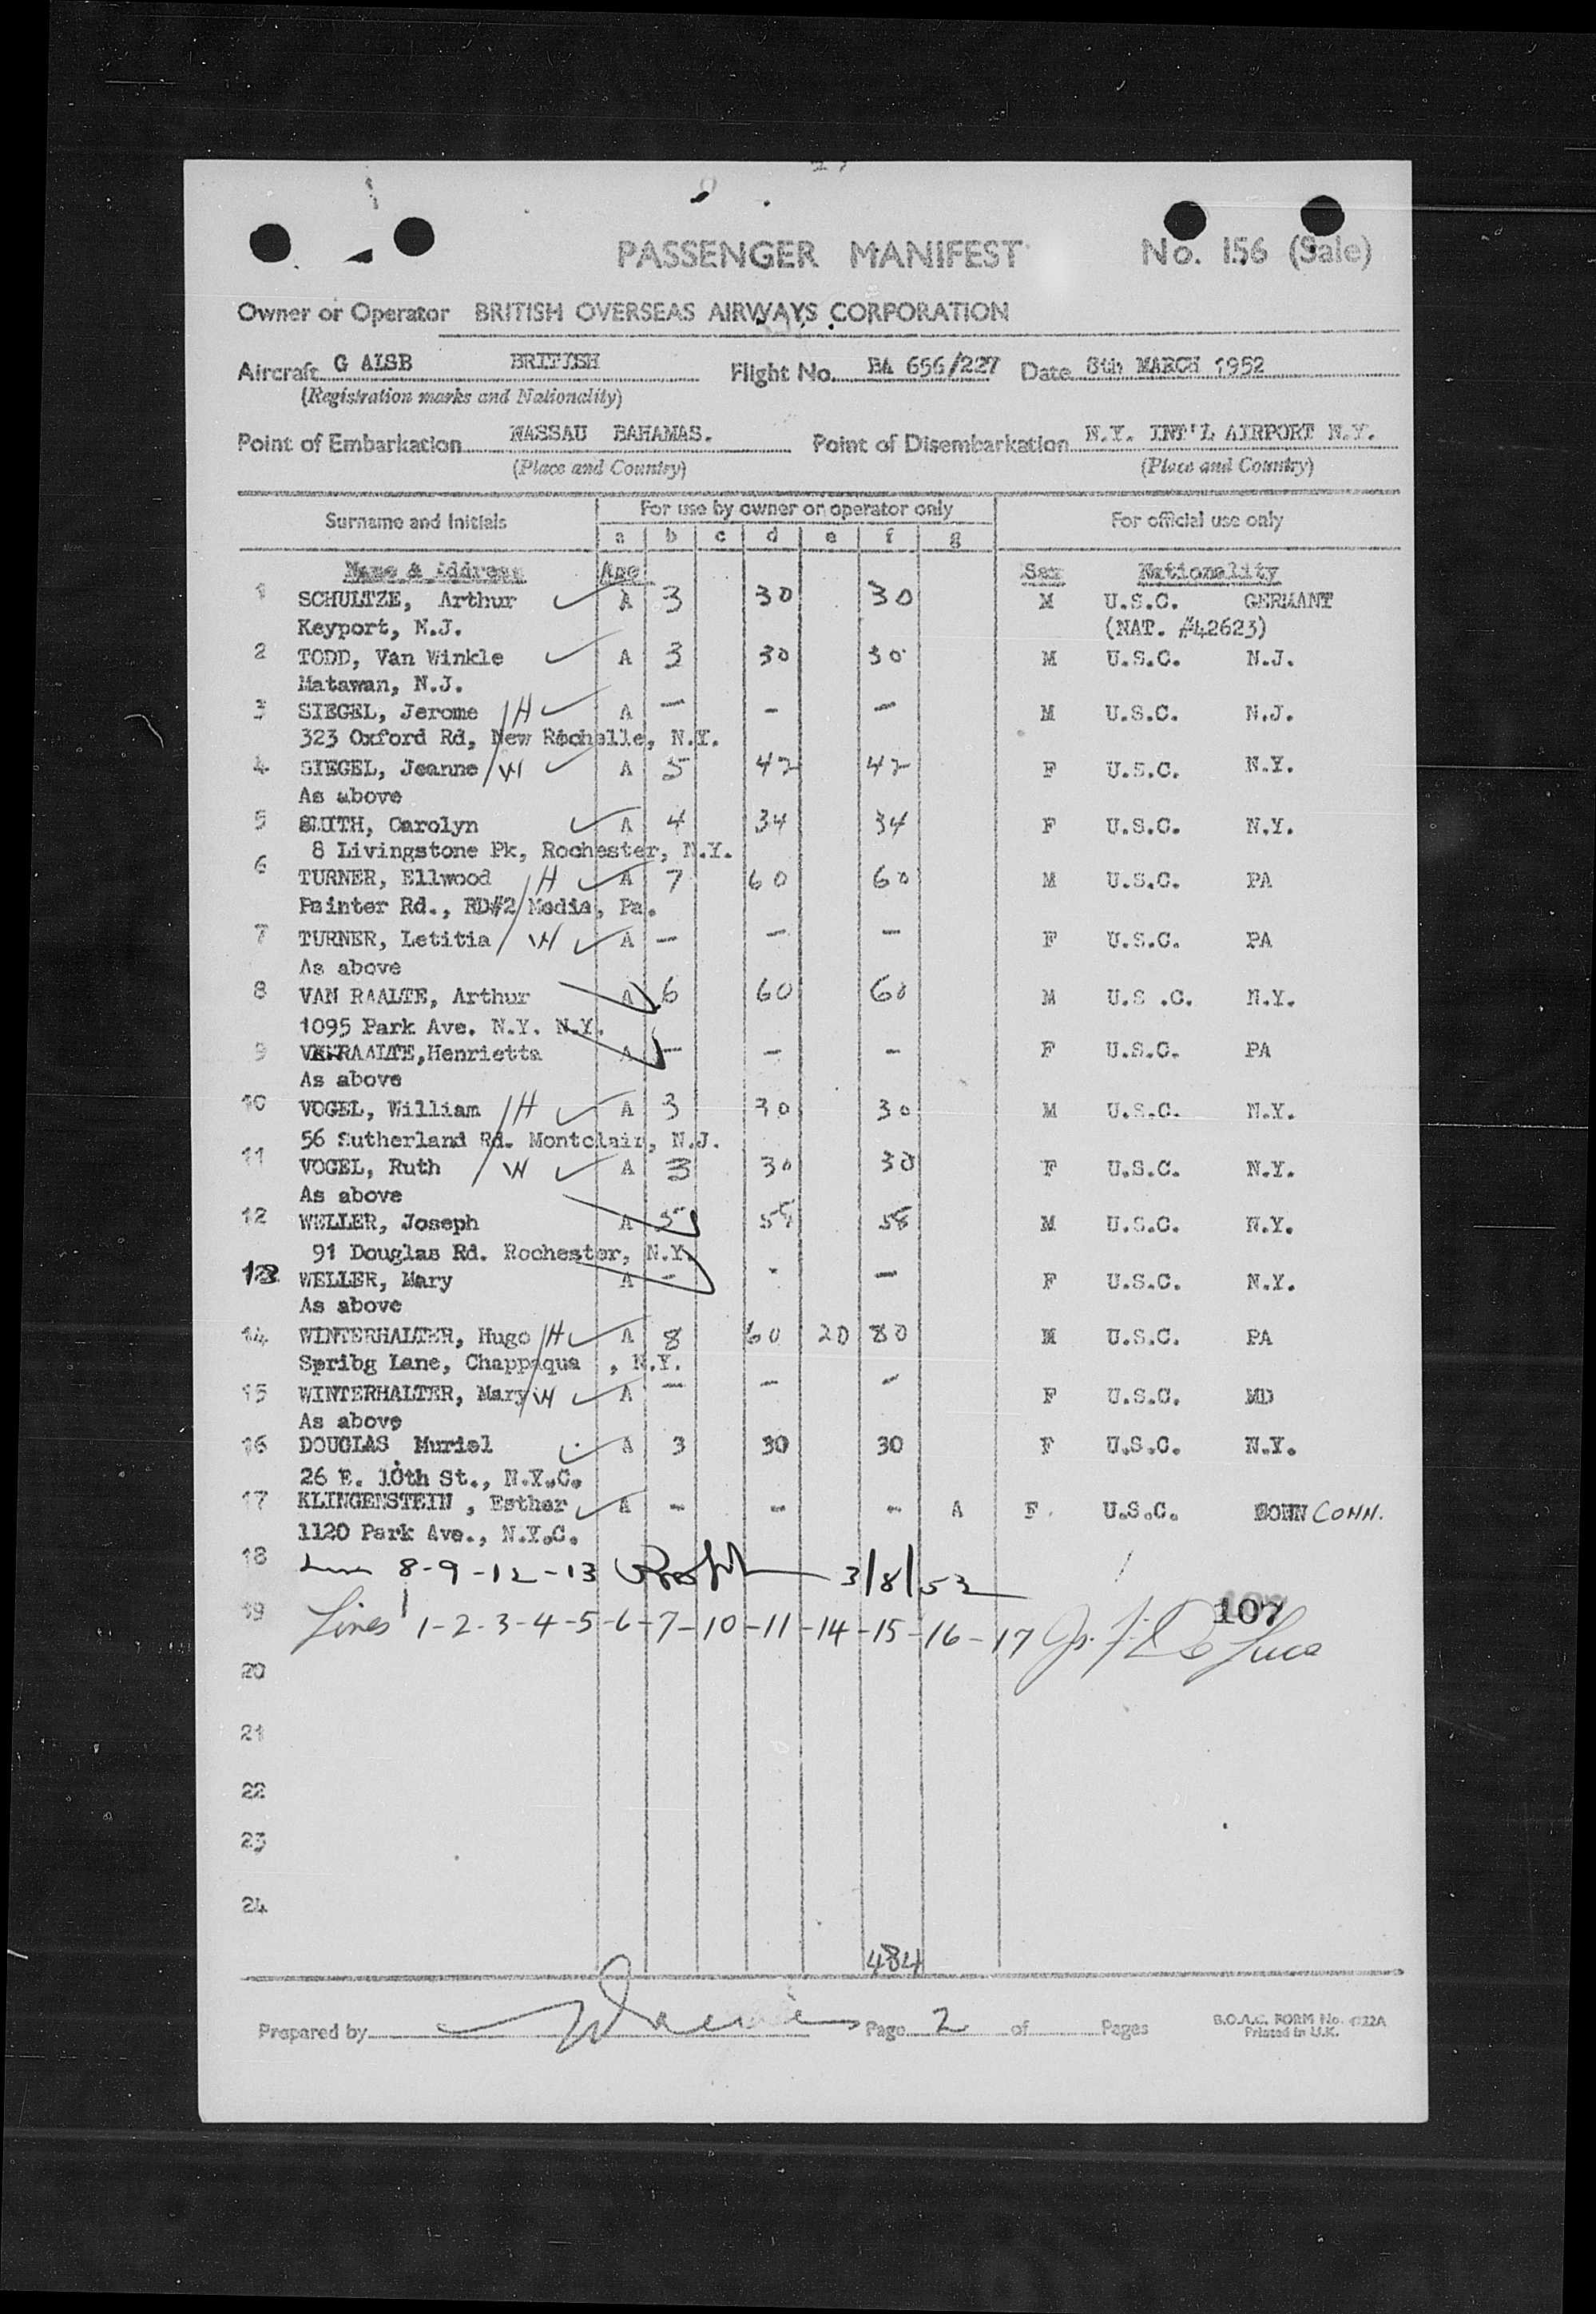 PASSENGER MANIFEST No. 156 (Sale)
Owner or Operator BRITISH OVERSEAS AIRWAYS CORPORATION
Aircraft G ALSB BRITISH Flight No. BA 656/227 Date 8th MARCH 1952
(Registration marks and Nationality)
Point of Embarkation NASSAU BAHAMAS. Point of Disembarkation N.Y. INT'L AIRPORT N.Y.
(Place and Country) (Place and Country)
Surname and Initials For use by owner or operator only For official use only
a b c d e f g
Name & Address Age Sex Nationality
1 SCHULTZE, Arthur A 3 30 30 M U.S.C. GERMANY
Keyport, N.J. (NAT. #42623)
2 TODD, Van Winkle A 3 30 30 M U.S.C. N.J.
Matawan, N.J.
3 SIEGEL, Jerome H A - - - M U.S.C. N.J.
323 Oxford Rd, New Rochelle, N.Y.
4 SIEGEL, Jeanne W A 5 42 42 F U.S.C. N.Y.
As above
5 SMITH, Carolyn A 4 34 34 F U.S.C. N.Y.
8 Livingstone Pk, Rochester, N.Y.
6 TURNER, Ellwood H A 7 60 60 M U.S.C. PA
Painter Rd., RD#2 Media, Pa.
7 TURNER, Letitia W A - - - F U.S.C. PA
As above
8 VAN RAALTE, Arthur A 6 60 60 M U.S .C. N.Y.
1095 Park Ave. N.Y. N.Y.
9 VAN RAALTE,Henrietta A - - - F U.S.C. PA
As above
10 VOGEL, William H A 3 30 30 M U.S.C. N.Y.
56 Sutherland Rd. Montclair, N.J.
11 VOGEL, Ruth W A 3 30 30 F U.S.C. N.Y.
As above
12 WELLER, Joseph A 5 58 58 M U.S.C. N.Y.
91 Douglas Rd. Rochester, N.Y.
13 WELLER, Mary A - - - F U.S.C. N.Y.
As above
14 WINTERHALTER, Hugo H A 8 60 20 80 M U.S.C. PA
Spribg Lane, Chappaqua , N.Y.
15 WINTERHALTER, Mary W A - - - F U.S.C. MD
As above
16 DOUGLAS, Muriel A 3 30 30 F U.S.C. N.Y.
26 E. 10th St., N.Y.C.
17 KLINGENSTEIN , Esther A - - - A F. U.S.C. CONN.
1120 Park Ave., N.Y.C.
18 8-9-12-13 3/8/52
19 Lines 1-2-3-4-5-6-7-10-11-14-15-16-17 De Luca
107
20
21
22
23
24
484
Prepared by Page 2 of Pages B.O.A.C. FORM No. 4722A
Printed in U.K.